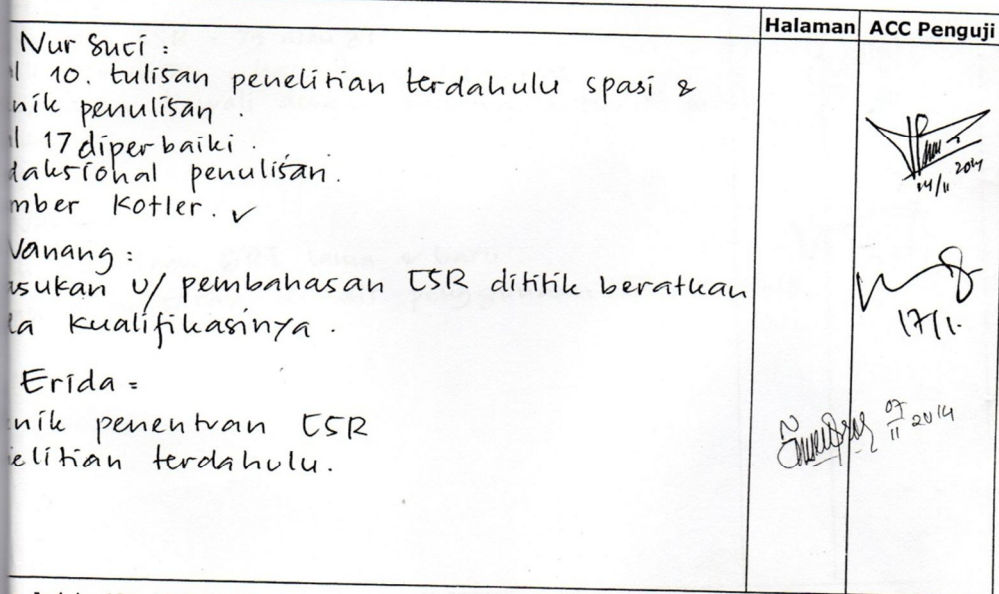 Halaman ACC Penguji
Nur Suci :
l 10. tulisan penelitian terdahulu spasi &
nik penulisan .
l 17 diperbaiki .
daksional penulisan.
mber Kotler. ✓
Wanang :
asukan u/ pembahasan CSR dititik beratkan
da kualifikasinya .
Erida =
nik penentuan CSR
elitian terdahulu.
14/11 2014
17/1.
07/11 2014